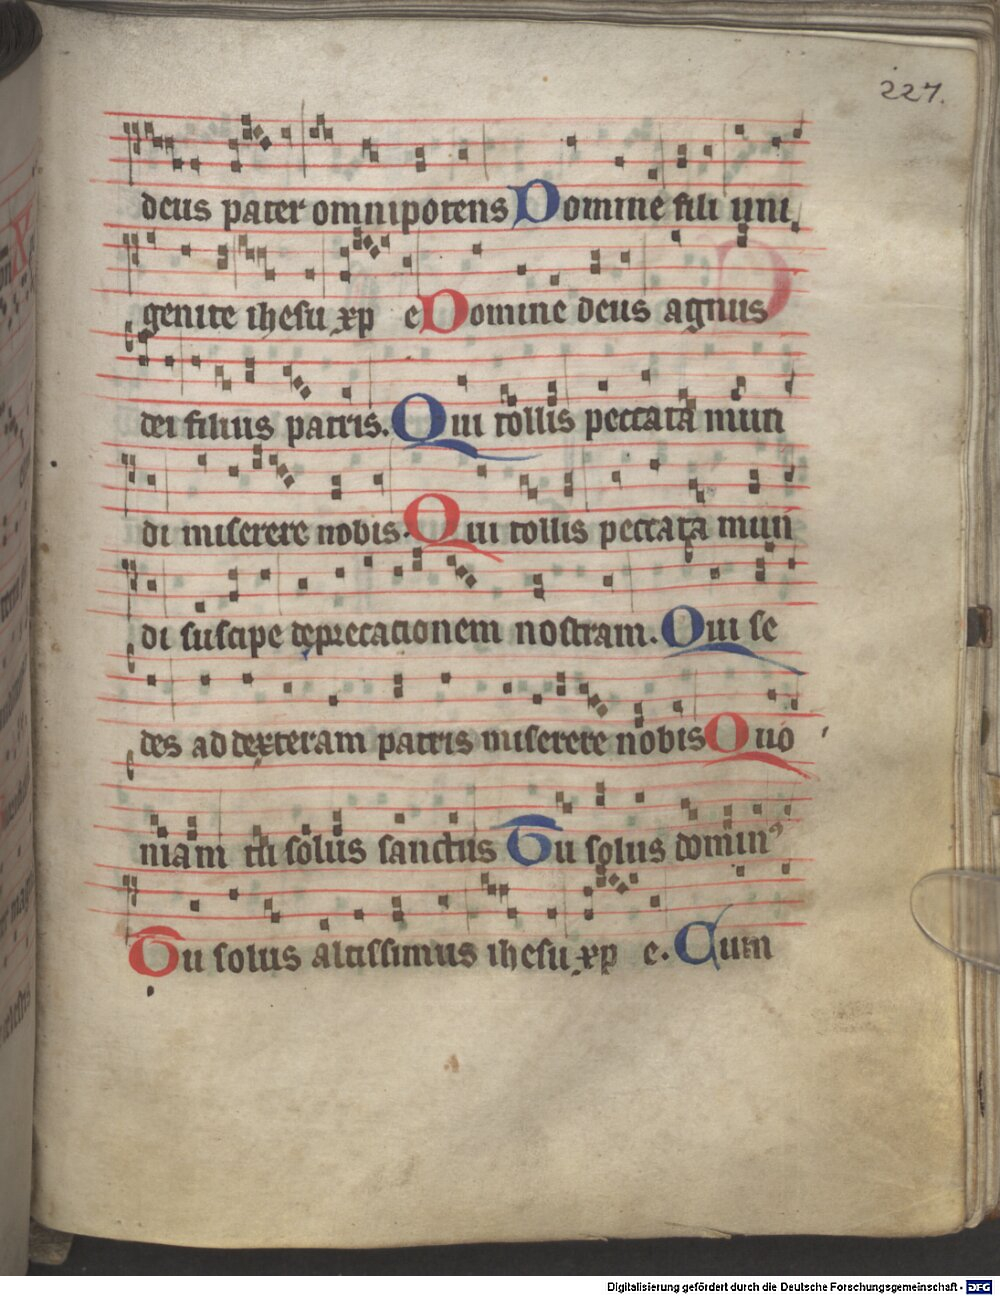 227.
deus pater omnipotens Domine fili uni
genite ihesu xp e Domine deus agnus
dei filius patris. Qui tollis peccata mun
di miserere nobis. Qui tollis peccata mun
di suscipe deprecationem nostram. Qui se
des ad dexteram patris miserere nobis Quo
niam tu solus sanctus Tu solus dominꝰ
Tu solus altissimus ihesu xp e. Cum
Digitalisierung gefördert durch die Deutsche Forschungsgemeinschaft - DFG